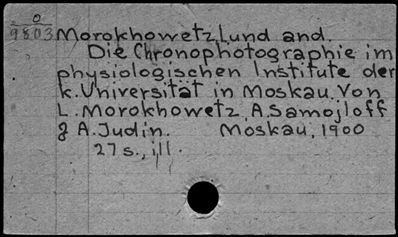 0
9803
Morokhowetz, L und and.
Die Chronophotographie im
physiologischen Institute der
k. Universität in Moskau. Von
L. Morokhowetz, A. Samojloff
& A. Judin. Moskau, 1900
27 s., ill.